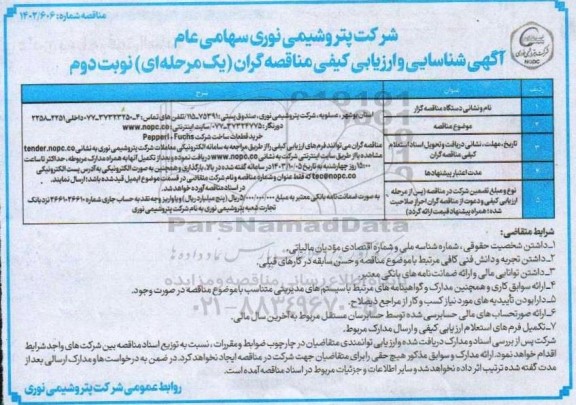 مناقصه شماره: ۱۴۰۲/۶۰۶
شرکت پتروشیمی نوری سهامی عام
آگهی شناسایی و ارزیابی کیفی مناقصه گران (یک مرحله‌ای) نوبت دوم
NOPC
ردیف عنوان شرح
۱ نام و نشانی دستگاه مناقصه گزار
استان بوشهر، عسلویه، شرکت پتروشیمی نوری، صندوق پستی: ۷۵۳۹۱-۱۱۵
www.nopc.co سایت اینترنتی
۲ موضوع مناقصه
خرید قطعات ساخت شرکت Pepperl + Fuchs
۳ تاریخ، مهلت، نشانی دریافت و تحویل اسناد استعلام کیفی مناقصه گران
مناقصه گران می‌توانند فرم های ارزیابی کیفی را از طریق مراجعه به سامانه الکترونیکی معاملات شرکت پتروشیمی نوری به نشانی tender.nopc.co
مشاهده یا از طریق سایت اینترنتی شرکت به نشانی www.nopc.co دریافت نموده و بعد از تکمیل آنها به همراه مدارک مربوطه، حداکثر تا ساعت
۱۵:۰۰ روز چهارشنبه به تاریخ ۱۴۰۳/۱۰/۰۵ در سامانه گفته شده در بالا، بارگذاری و همچنین به صورت الکترونیکی به آدرس پست الکترونیکی
tec@nopc.co فقط عنوان و شماره مناقصه و نام شرکت متقاضی در قسمت موضوع ایمیل قید شده باشد؛ ارسال نمایند.
۴ مدت اعتبار پیشنهادها
در اسناد مناقصه آورده خواهد شد.
۵ نوع و مبلغ تضمین شرکت در مناقصه (پس از مرحله ارزیابی کیفی و دعوت از مناقصه گران احراز صلاحیت شده؛ همراه پیشنهاد قیمت ارائه گردد)
به صورت ضمانت نامه بانکی معتبر به مبلغ ۵/۰۰۰/۰۰۰/۰۰۰ ریال (پنج میلیارد ریال) و یا واریز وجه نقد به حساب جاری شماره ۲۶۶۱۰۲۶۶۱ نزد بانک
تجارت شعبه پتروشیمی نوری به نام شرکت پتروشیمی نوری
ParsNamadData
۰۲۱-۸۸۳۴۹۶۷۰
شرایط متقاضی:
۱_داشتن شخصیت حقوقی، شماره شناسه ملی و شماره اقتصادی مؤدیان مالیاتی.
۲_داشتن تجربه و دانش فنی کافی مرتبط با موضوع مناقصه و حسن سابقه در کارهای قبلی.
۳_داشتن توانایی مالی و ارائه ضمانت نامه های بانکی معتبر.
۴_ارائه سوابق کاری و همچنین مدارک و گواهینامه های مرتبط با سیستم های مدیریتی متناسب با موضوع مناقصه در صورت وجود.
۵_دارا بودن تأییدیه های مورد نیاز کسب و کار از مراجع ذیصلاح.
۶_ارائه صورتحساب های مالی حسابرسی شده توسط حسابرسان مستقل مربوط به آخرین سال مالی.
۷_تکمیل فرم های استعلام ارزیابی کیفی و ارسال مدارک مربوط.
شرکت پس از بررسی اسناد و مدارک دریافت شده و ارزیابی توانمندی متقاضیان در چارچوب ضوابط و مقررات، نسبت به توزیع اسناد مناقصه بین شرکت های واجد شرایط
اقدام خواهد نمود. ارائه مدارک و سوابق مذکور هیچ حقی را برای متقاضیان جهت شرکت در مناقصه ایجاد نخواهد کرد. در ضمن به درخواست ها و مدارک ارسالی بعد از
مدت گفته شده ترتیب اثر داده نخواهد شد و سایر اطلاعات و جزئیات مربوط در اسناد مناقصه آمده است.
روابط عمومی شرکت پتروشیمی نوری